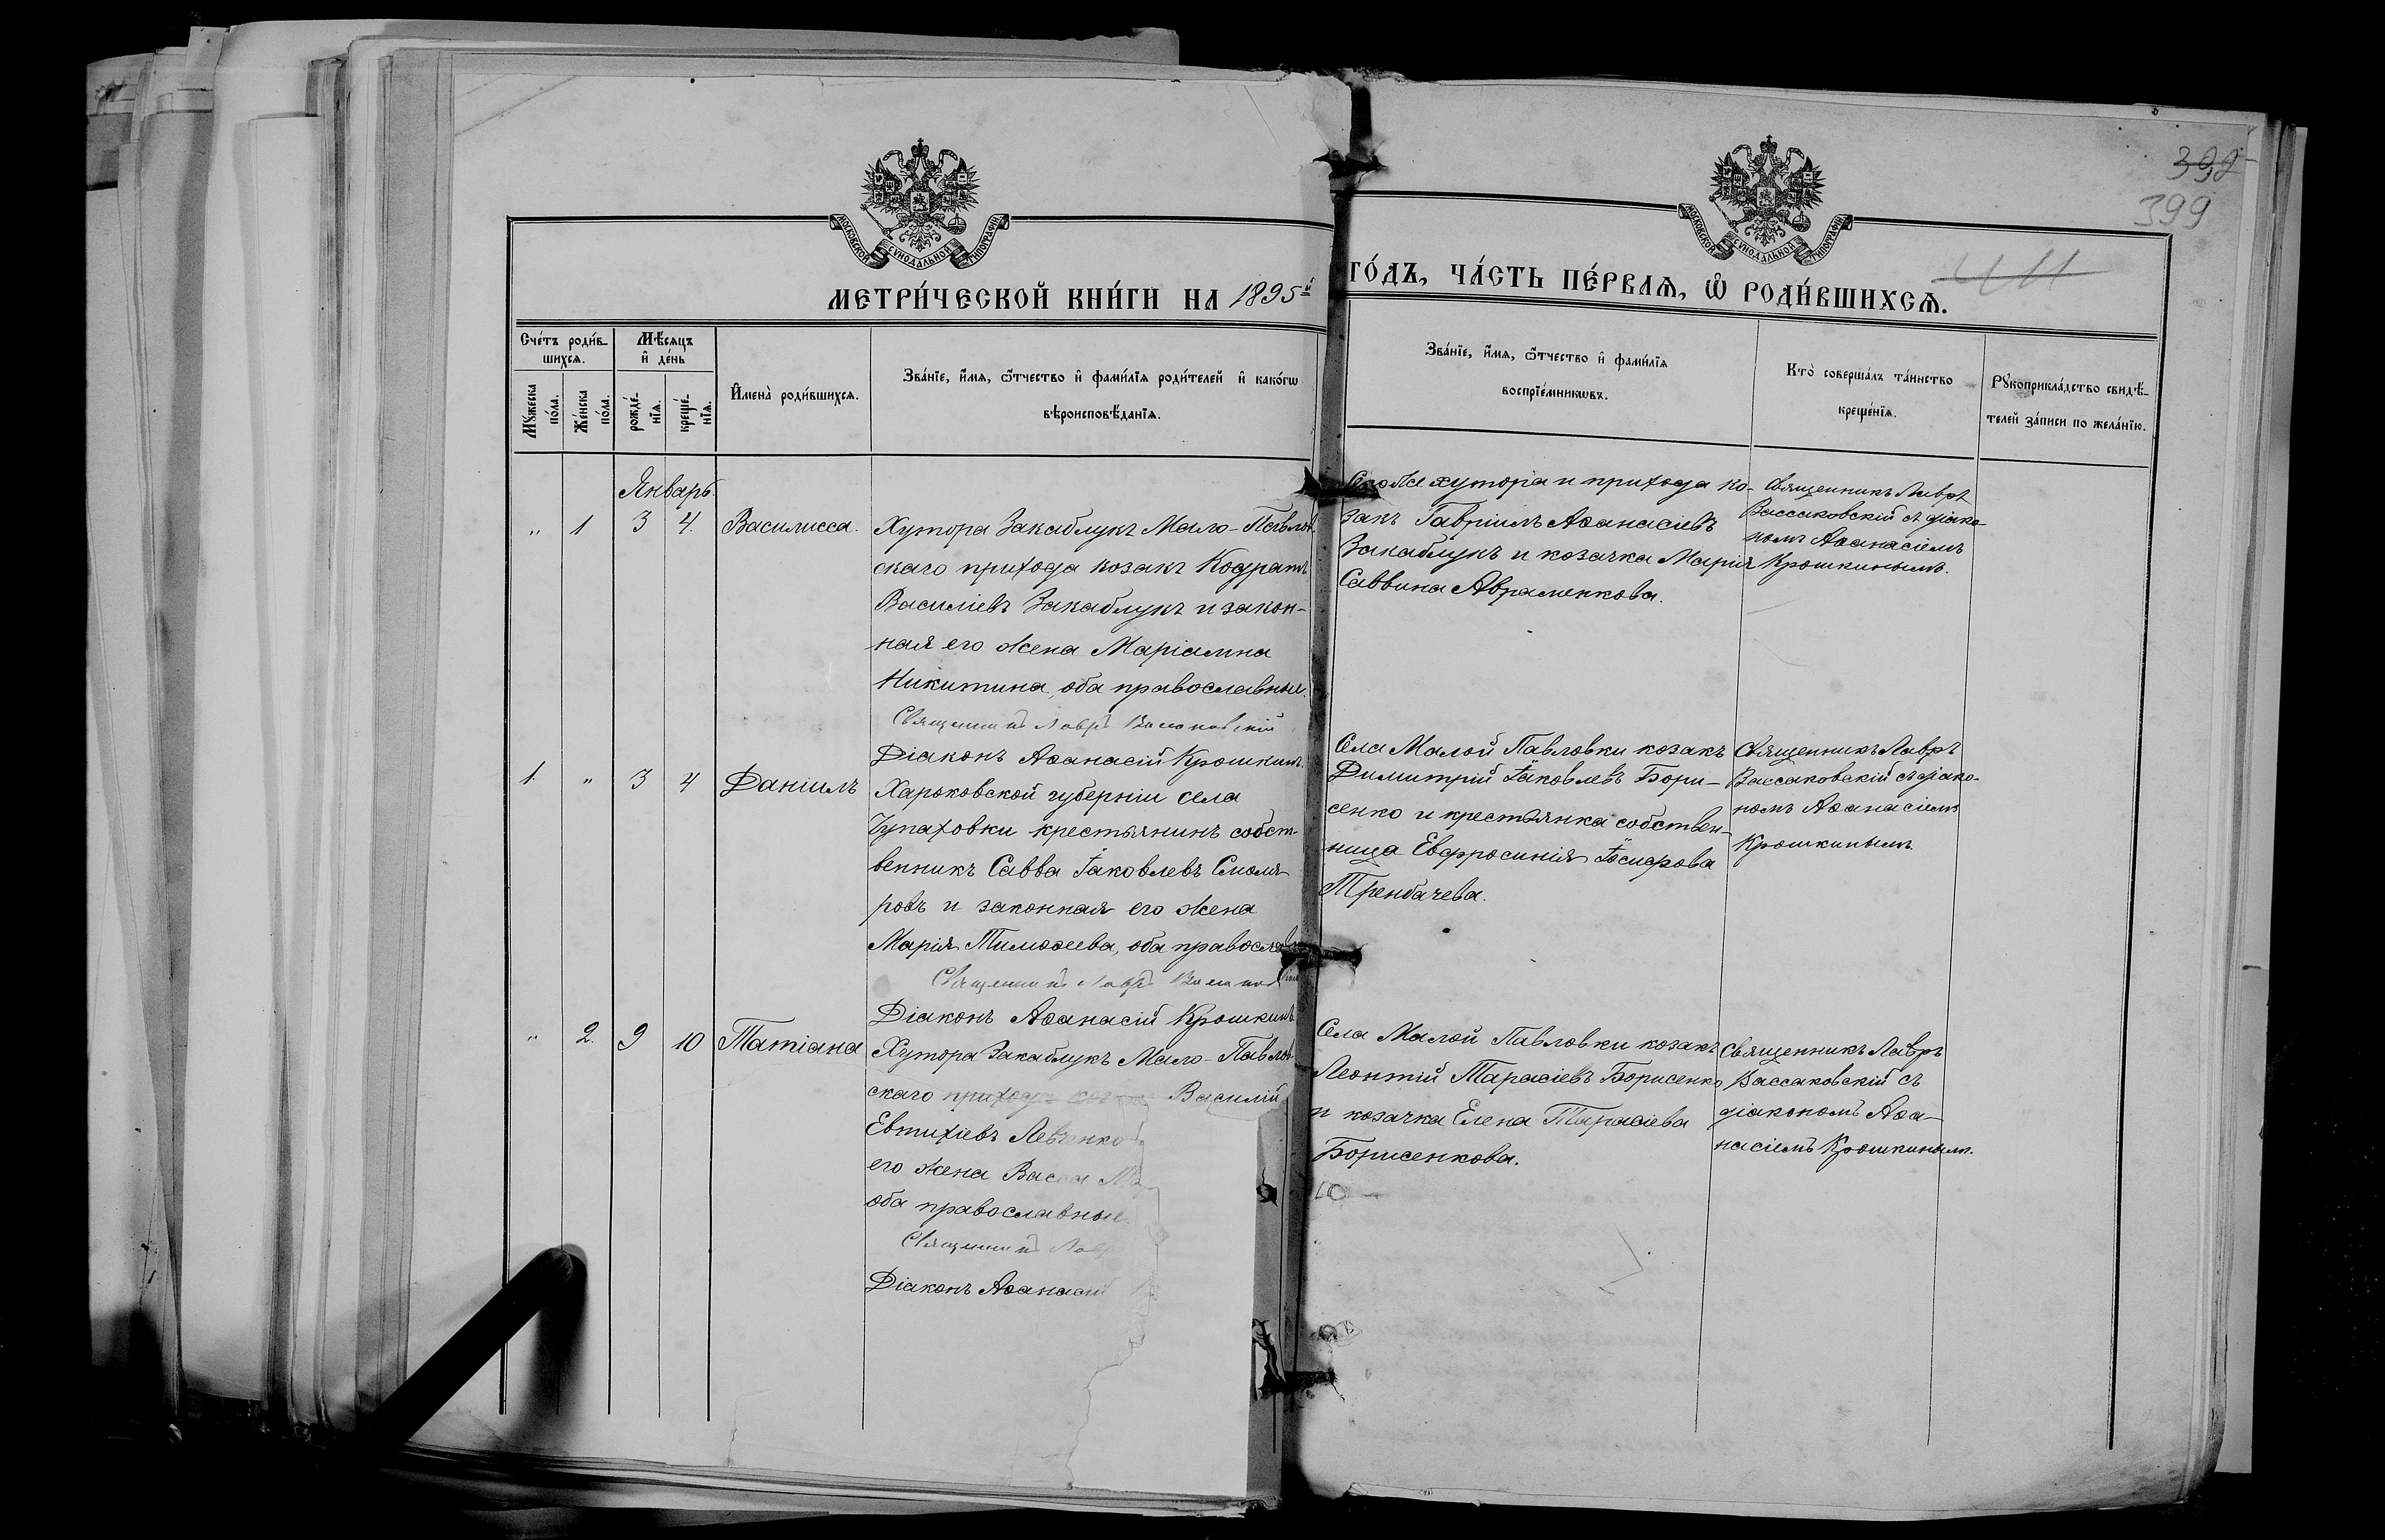 398
399
411
МОСКОВСКОЙ СѴНОДАЛЬНОЙ ТИПОГРАФІИ
МОСКОВСКОЙ СѴНОДАЛЬНОЙ ТИПОГРАФІИ
МЕТРИ́ЧЕСКОЙ КНИ́ГИ НА 1895й ГО́ДЪ, ЧА́СТЬ ПЕ́РВАѦ, Ѡ҆ РОДИ́ВШИХСѦ.
Сче́тъ роди́в-
шихсѧ.
Мꙋжеска по́ла.
Же́нска по́ла.
Мѣ́сѧцъ
и҆ де́нь
рожде́-
нїѧ.
креще́-
нїѧ.
И҆мена̀ роди́вшихсѧ.
Зва́нїе, и҆́мѧ, ѻ҆́тчество и҆ фами́лїѧ роди́телей и҆ како́гѡ
вѣроисповѣ́данїѧ.
Зва́нїе, и҆́мѧ, ѻ҆́тчество и҆ фами́лїѧ
воспрїе́мникѡвъ.
Кто̀ соверша́лъ та́инство
креще́нїѧ.
Рꙋкоприкла́дство свидѣ́-
телей за́писи по жела́нїю.
Январь.
„ 1 3 4. Василисса.
Хутора Закаблукъ Мало-Павлов
скаго прихода козакъ Кодратъ
Василіевъ Закаблукъ и закон-
ная его жена Маріамна
Никитина, оба православные.
Священникъ Лавръ Вассаковскій
Діаконъ Аѳанасій Крошкинъ.
хутора и прихода ко-
закъ Гавріилъ Аѳанасіевъ
Закаблукъ и козачка Марія
Саввина Авраменкова.
Священникъ Лавръ
Вассаковскій съ діако-
номъ Аѳанасіемъ
Крошкинымъ.
1. „ 3 4 Даніилъ
Харьковской губерніи села
Чупаховки крестьянинъ собст-
венникъ Савва Іаковлевъ Смоля-
ровъ и законная его жена
Марія Тимоѳеева, оба православн
Священникъ Лавръ Вассаковскій
Діаконъ Аѳанасій Крошкинъ
Села Малой Павловки козакъ
Димитрій Іаковлевъ Бори-
сенко и крестьянка собствен-
ница Евфросинія
Тренбачева.
Священникъ Лавръ
Вассаковскій съ діако-
номъ Аѳанасіемъ
Крошкинымъ.
„ 2. 9 10 Татіана
Хутора Закаблукъ Мало-Павлов
скаго прихода козакъ Василій
Евтихіевъ Левченко
его жена Васса
оба православные.
Священникъ Лавр
Діаконъ Аѳанасій
Села Малой Павловки козакъ
Леонтій Тарасіевъ Борисенко
и козачка Елена Тарасіева
Борисенкова.
Священникъ Лавръ
Вассаковскій съ
діакономъ Аѳа-
насіемъ Крошкинымъ.